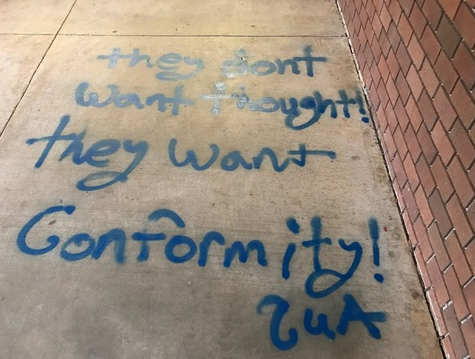 they dont
want thought!
they want
Conformity!